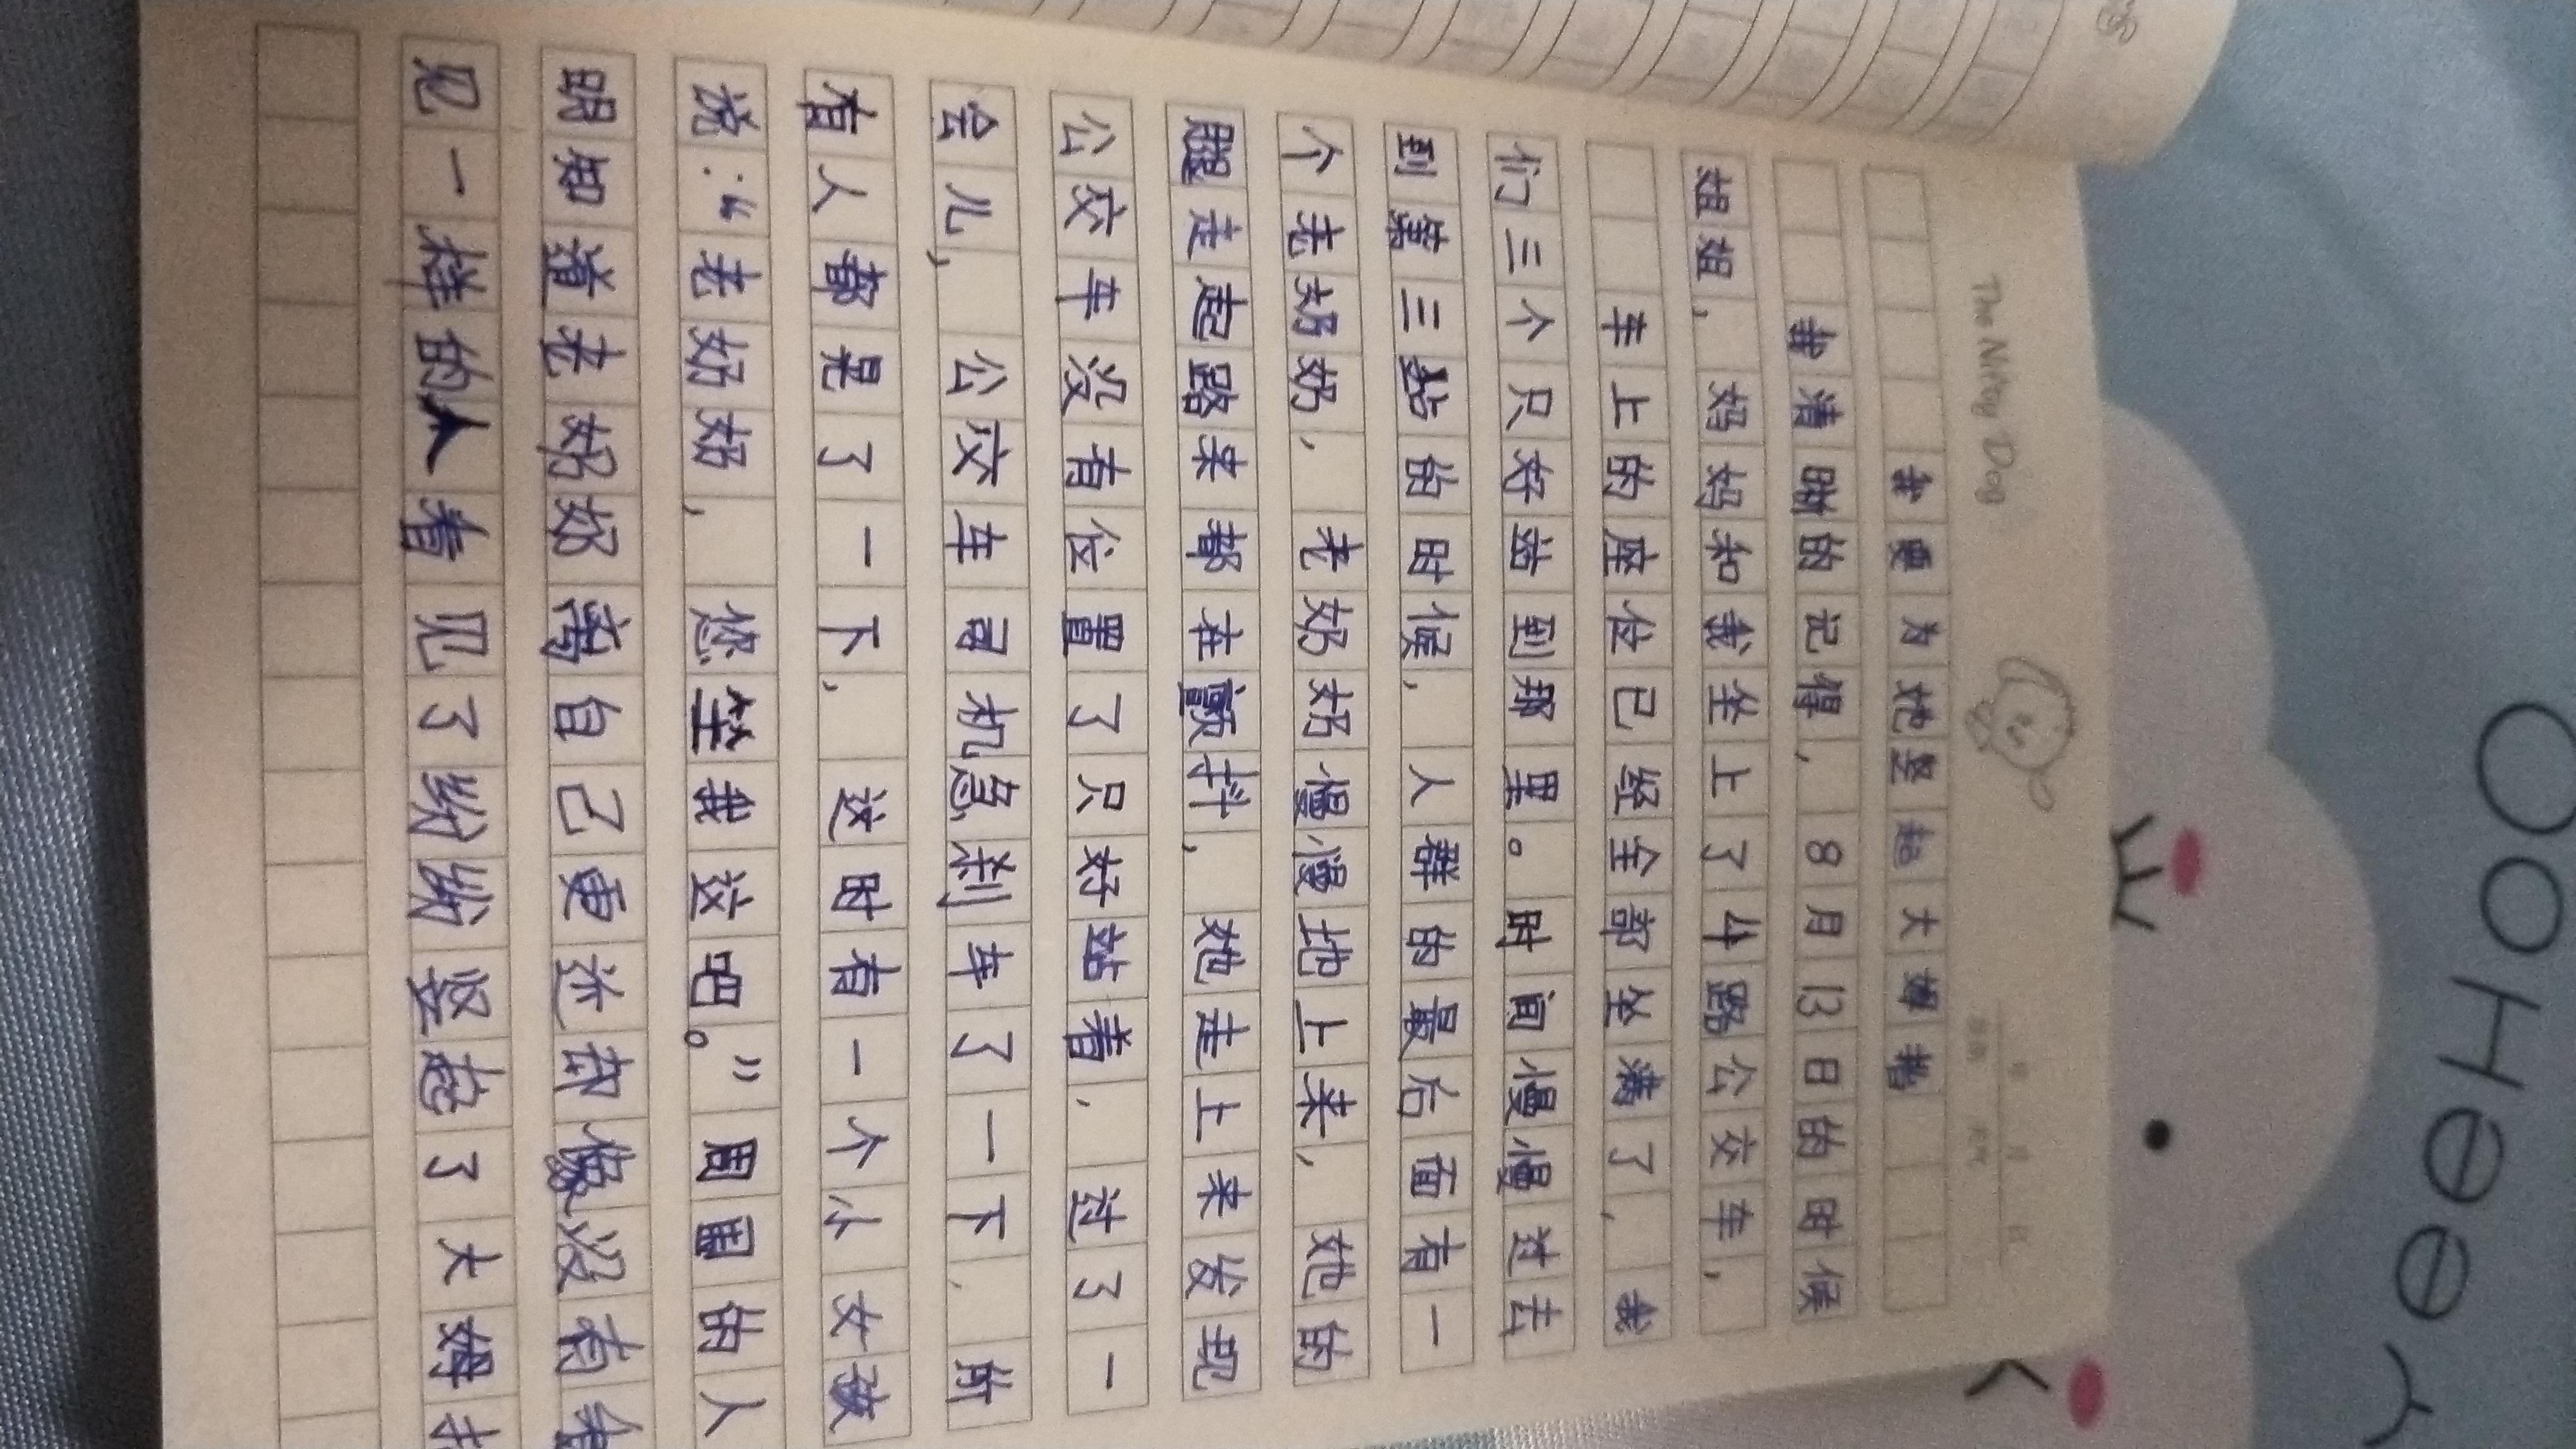 The Nifty Dog
我要为她竖起大拇指
我清晰的记得，8月13日的时候
姐姐，妈妈和我坐上了4路公交车，
车上的座位已经全部坐满了，我
们三个只好站到那里。时间慢慢过去
到第三站的时候，人群的最后面有一
个老奶奶，老奶奶慢慢地上来，她的
腿走起路来都在颤抖，她走上来发现
公交车没有位置了只好站着，过了一
会儿，公交车司机急刹车了一下，所
有人都晃了一下，这时有一个小女孩
说：“老奶奶，您坐我这吧。”周围的人
明知道老奶奶离自己更近却像没有看
见一样的人看见了纷纷竖起了大拇指
OOHeey